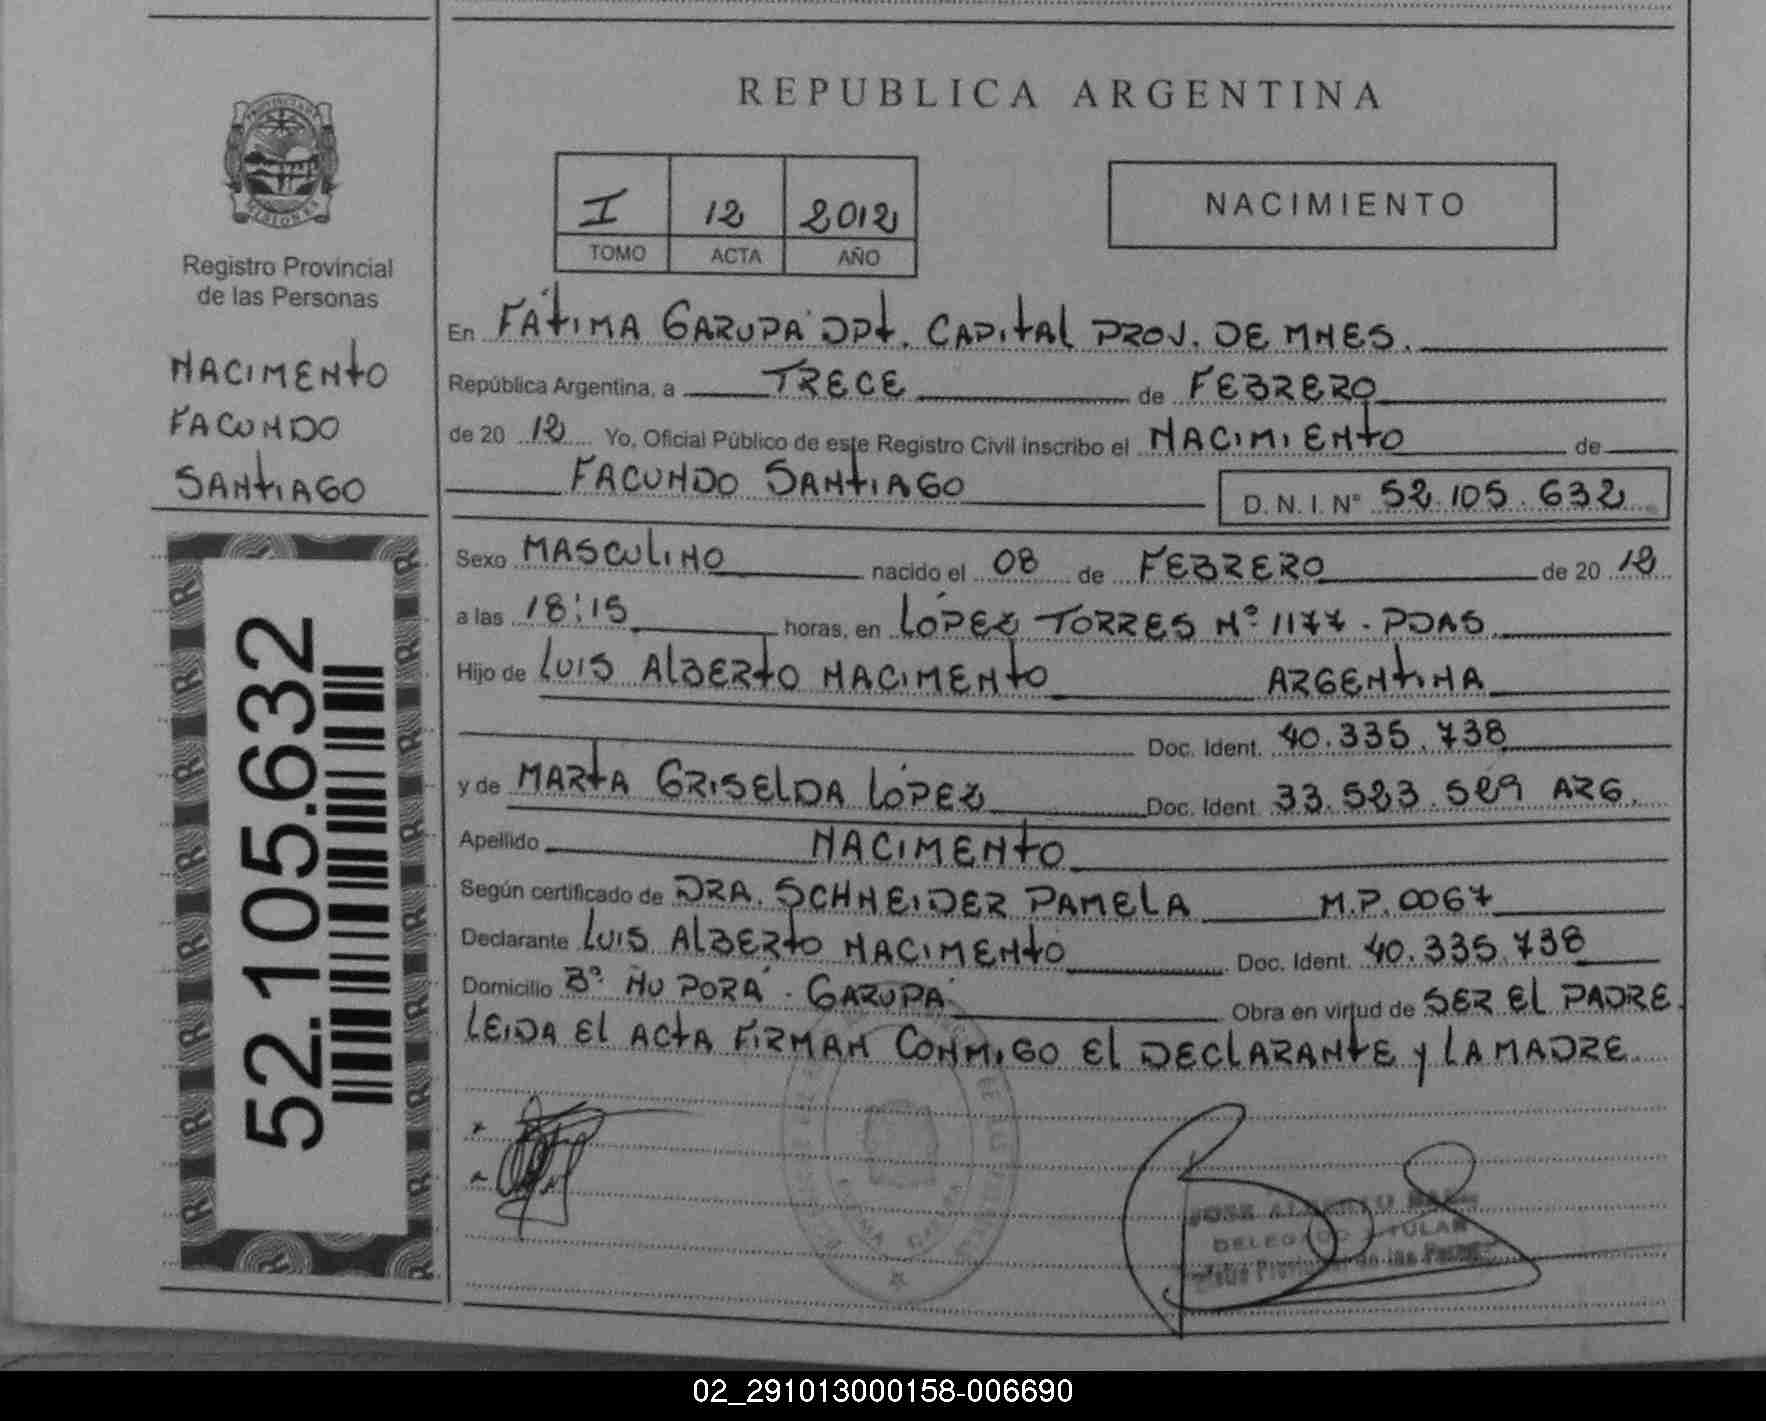 REPUBLICA ARGENTINA
I 12 2012
TOMO ACTA AÑO
NACIMIENTO
PROVINCIA DE MISIONES
Registro Provincial
de las Personas
NACIMENTO
FACUNDO
SANTIAGO
52.105.632
En FÁTIMA GARUPÁ DPT. CAPITAL PROV. DE MNES.
República Argentina, a TRECE de FEBRERO
de 20 12 Yo, Oficial Público de este Registro Civil inscribo el NACIMIENTO de
FACUNDO SANTIAGO D.N.I. Nº 52.105.632
Sexo MASCULINO nacido el 08 de FEBRERO de 20 12
a las 18:15 horas, en LÓPEZ TORRES Nº 1177 - PDAS
Hijo de LUIS ALBERTO NACIMENTO ARGENTINA
Doc. Ident. 40.335.738
y de MARTA GRISELDA LÓPEZ Doc. Ident. 33.523.529 ARG.
Apellido NACIMENTO
Según certificado de DRA. SCHNEIDER PAMELA M.P. 0067
Declarante LUIS ALBERTO NACIMENTO Doc. Ident. 40.335.738
Domicilio Bº ÑU PORÁ - GARUPÁ Obra en virtud de SER EL PADRE.
LEIDA EL ACTA FIRMAN CONMIGO EL DECLARANTE Y LA MADRE
JOSE ALBERTO
DELEGADO TITULAR
Registro Provincial de las Personas
02_291013000158-006690